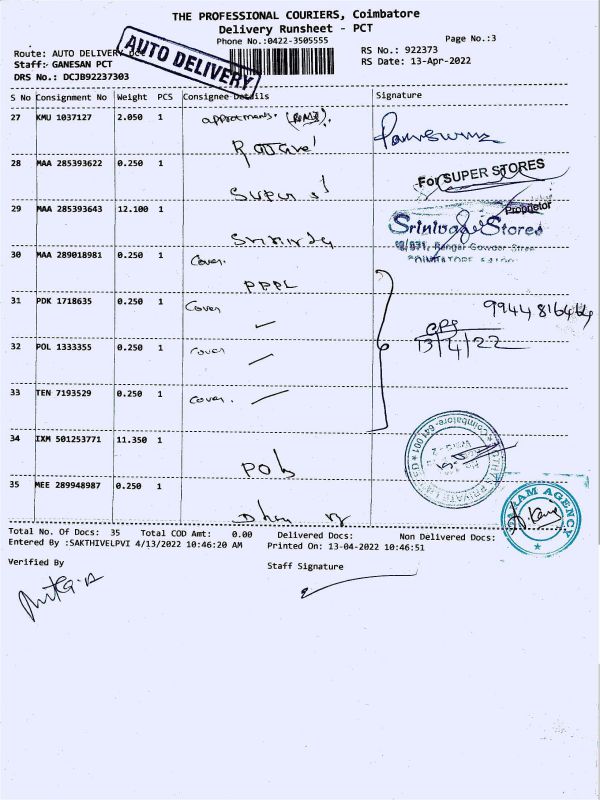 THE PROFESSIONAL COURIERS, Coimbatore
Delivery Runsheet - PCT
Phone No.:0422-3505555
Page No.:3
Route: AUTO DELIVERY
AUTO DELIVERY
RS No.: 922373
Staff: GANESAN PCT
RS Date: 13-Apr-2022
DRS No.: DCJB92237303
S No Consignment No Weight PCS Consignee Details Signature
27 KMU 1037127 2.050 1
28 MAA 285393622 0.250 1
For SUPER STORES
Super
29 MAA 285393643 12.100 1
Proprietor
Srinivasa Stores
30 MAA 289018981 0.250 1 Cover.
PPPL
31 PDK 1718635 0.250 1 Cover
9944816464
13/4/22
32 POL 1333355 0.250 1 Cover
33 TEN 7193529 0.250 1 Cover.
34 IXM 501253771 11.350 1
35 MEE 289948987 0.250 1
AGENCY
Total No. Of Docs: 35 Total COD Amt: 0.00 Delivered Docs: Non Delivered Docs:
Entered By :SAKTHIVELPVI 4/13/2022 10:46:20 AM Printed On: 13-04-2022 10:46:51
Verified By
Staff Signature